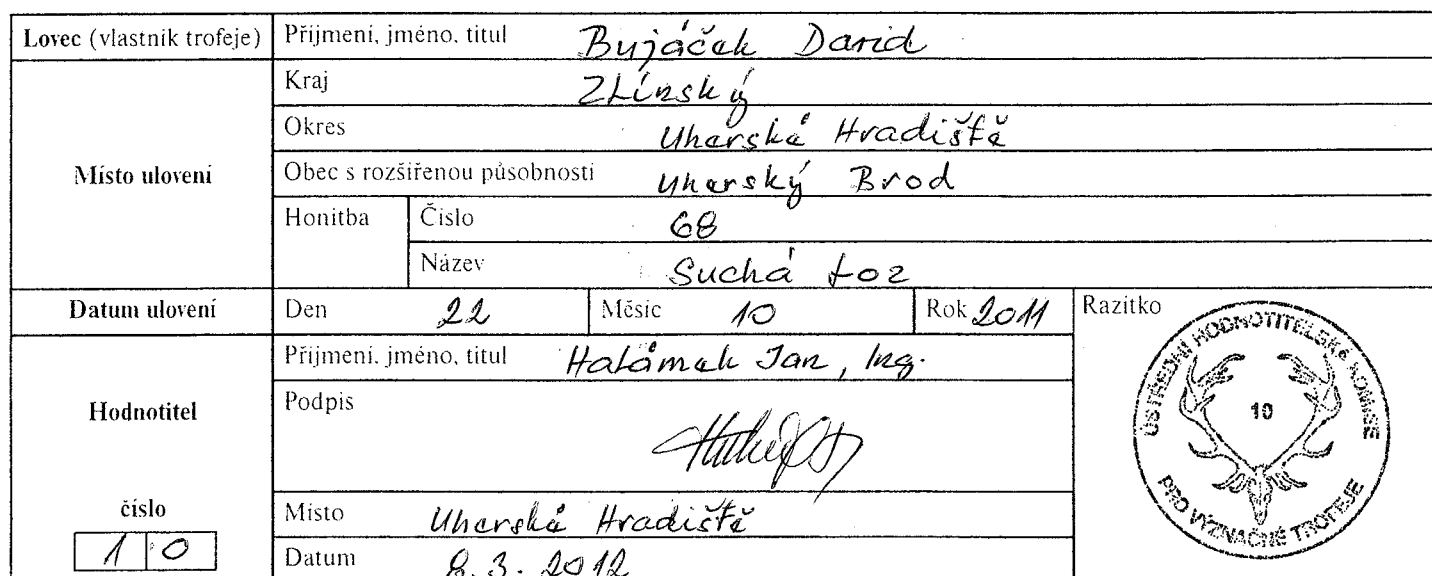 Lovec (vlastník trofeje) Příjmení, jméno, titul Bujáček David
Místo ulovení
Kraj Zlínský
Okres Uherské Hradiště
Obec s rozšířenou působností Uherský Brod
Honitba Číslo 68
Název Suchá Loz
Datum ulovení Den 22 Měsíc 10 Rok 2011 Razítko
Hodnotitel
Příjmení, jméno, titul Halámek Jan, Ing.
Podpis
číslo
10
Místo Uherské Hradiště
Datum 8. 3. 2012
ÚSTŘEDNÍ HODNOTITELSKÁ KOMISE
10
PRO VÝZNAČNÉ TROFEJE